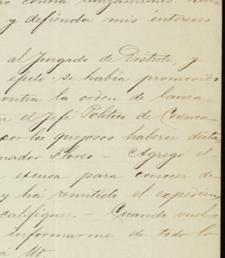 y defienda mis intereses
al Juzgado de Distrito, y
efecto se habia promovido
contra la orden de lanza
el Jefe Politico de Cuenca
por los quejosos haberse dicta
nador Flores - Agrego el
excusa para conocer de
y ha remitido el expedien
califique. - Cuando vuel
informarme de todo lo